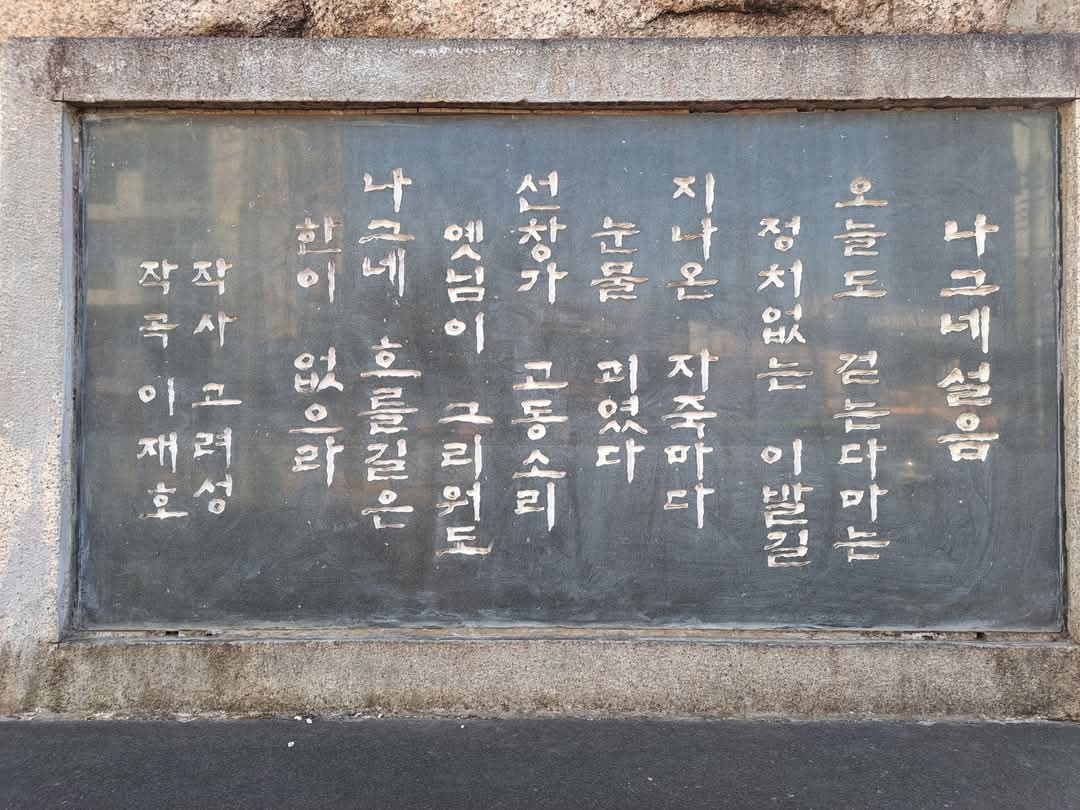 나그네설음
오늘도 걷는다마는
정처없는 이발길
지나온 자죽마다
눈물 괴였다
선창가 고동소리
옛님이 그리워도
나그네 흐를길은
한이 없으라
작사 고려성
작곡 이재호